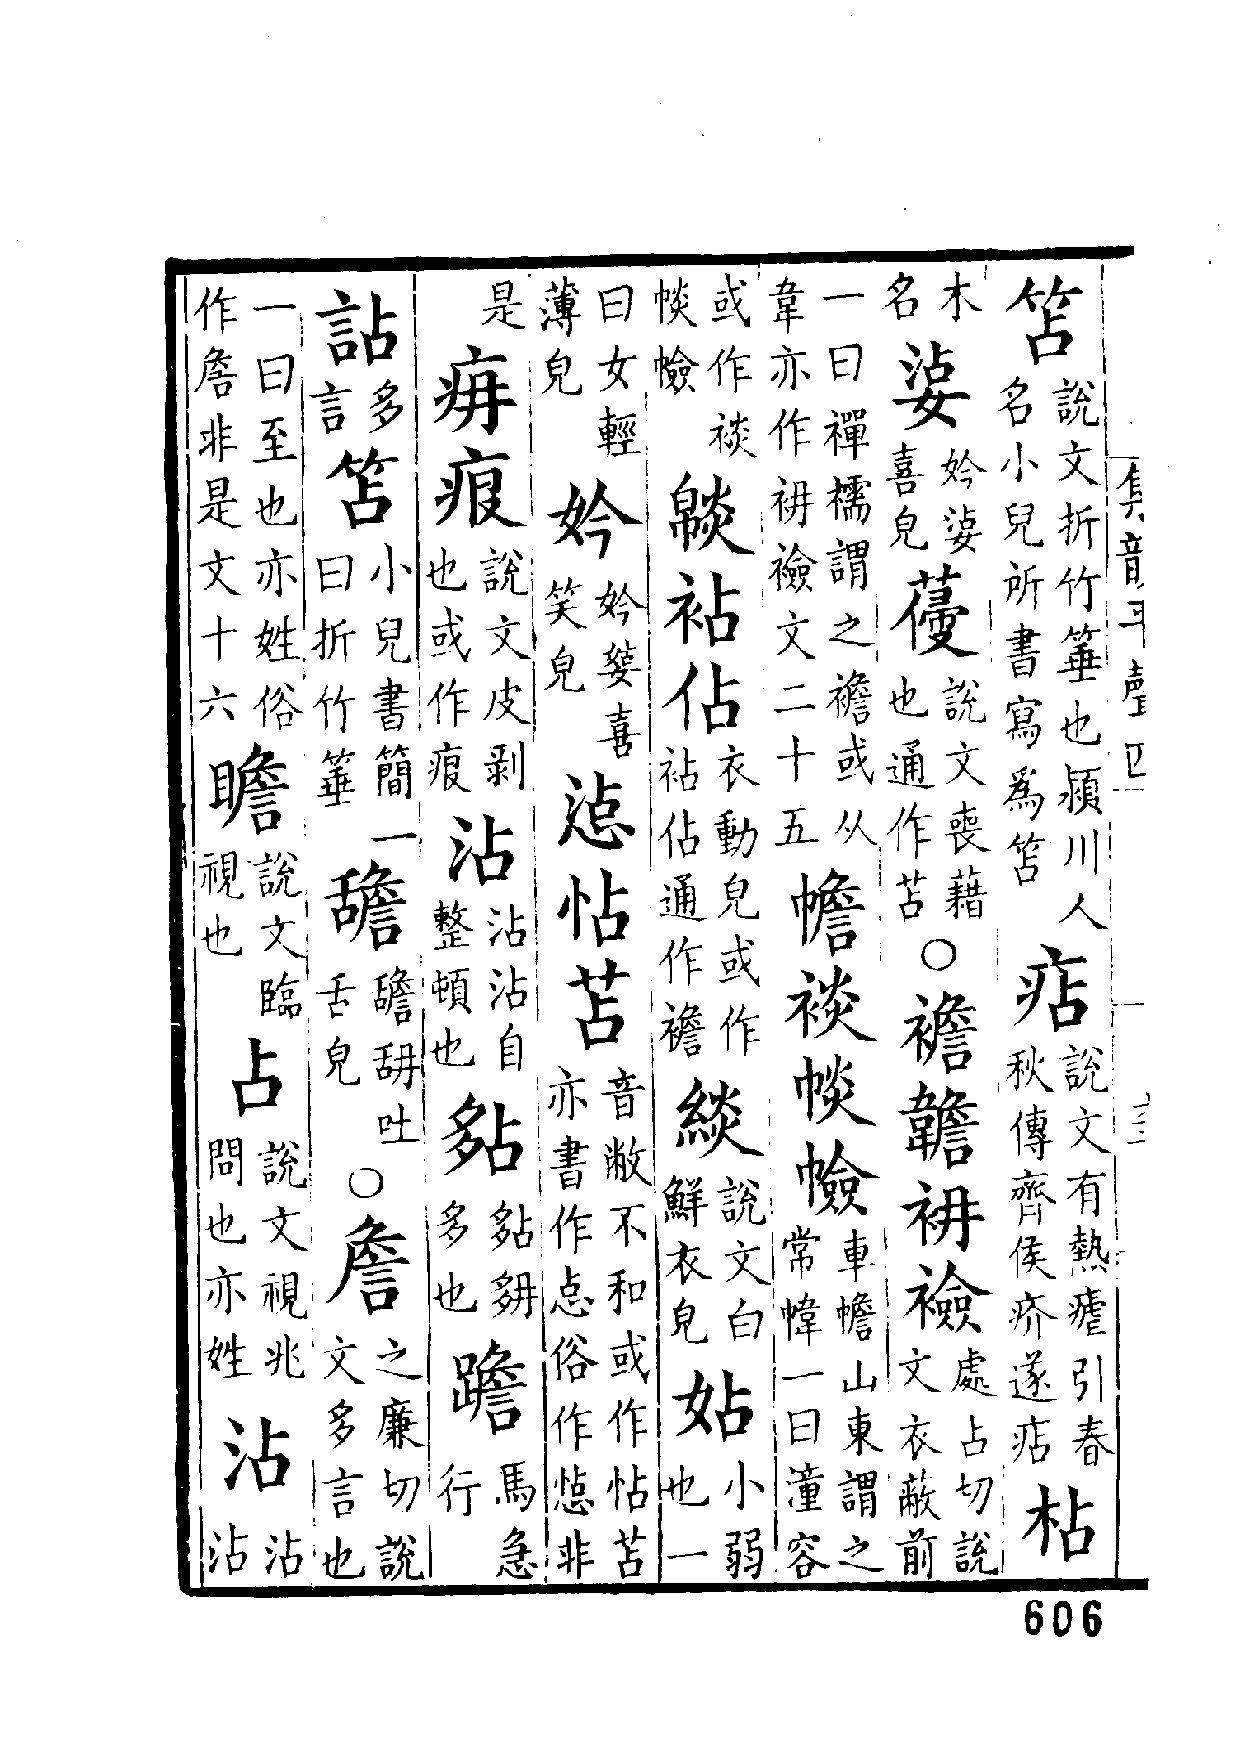 集韻平聲四
笘說文折竹箠也潁川人名小兒所書寫爲笘痁說文有熱瘧引春秋傳齊侯疥遂痁枮
木名妗喜皃說文喪藉也通作苫○襜韂袡襝處占切說文衣蔽前
一曰襌襦謂之襜或从韋亦作袡襝文二十五幨裧車幨山東謂之常幃一曰潼容
或作裧袩佔衣動皃或作袩佔通作襜緂說文白鮮衣皃㚲小弱也一
曰女輕薄皃妗妗喜笑皃惉怗苫音敝不和或作怗苫亦書作惉俗作非
是說文皮剝也或作沾沾沾自整頓也多也馬急行
詀多言笘小兒書簡一曰折竹箠舚舚䑙吐舌皃○詹之廉切說文多言也
一曰至也亦姓俗作詹非是文十六瞻說文臨視也占說文視兆問也亦姓沾沾沾
606